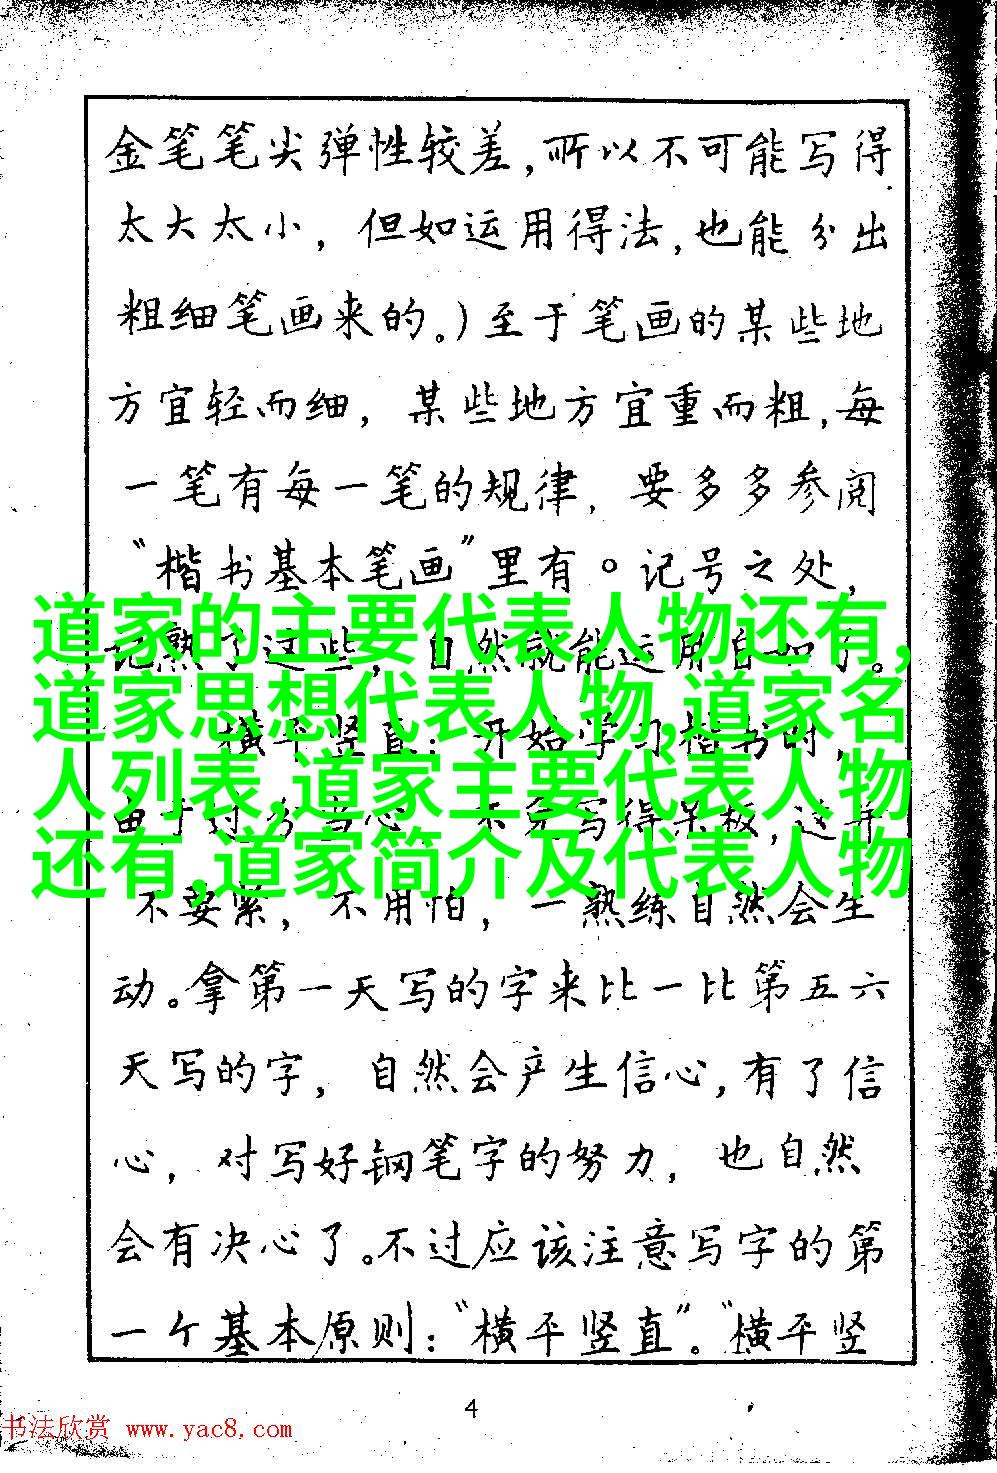 金笔笔尖弹性较差,所以不可能写得
太大太小,但如运用得法,也能分出
粗细笔画来的。)至于笔画的某些地
方宜轻而细,某些地方宜重而粗,每
一笔有每一笔的规律,要多多参阅
“楷书基本笔画”里有。记号之处,
道家的主要代表人物还有,
记熟了这些,自然就能运用自如了。
道家思想代表人物,道家名
横平竖直:开始学习楷书时,
人列表,道家主要代表人物
由于过分当心,不免写得呆板,这并
还有,道家简介及代表人物
不要紧,不用怕,一熟练自然会生
动。拿第一天写的字来比一比第五六
天写的字,自然会产生信心,有了信
心,对写好钢笔字的努力,也自然
会有决心了。不过应该注意写字的第
一个基本原则:“横平竖直”。“横平竖
4
书法欣赏 www.yac8.com